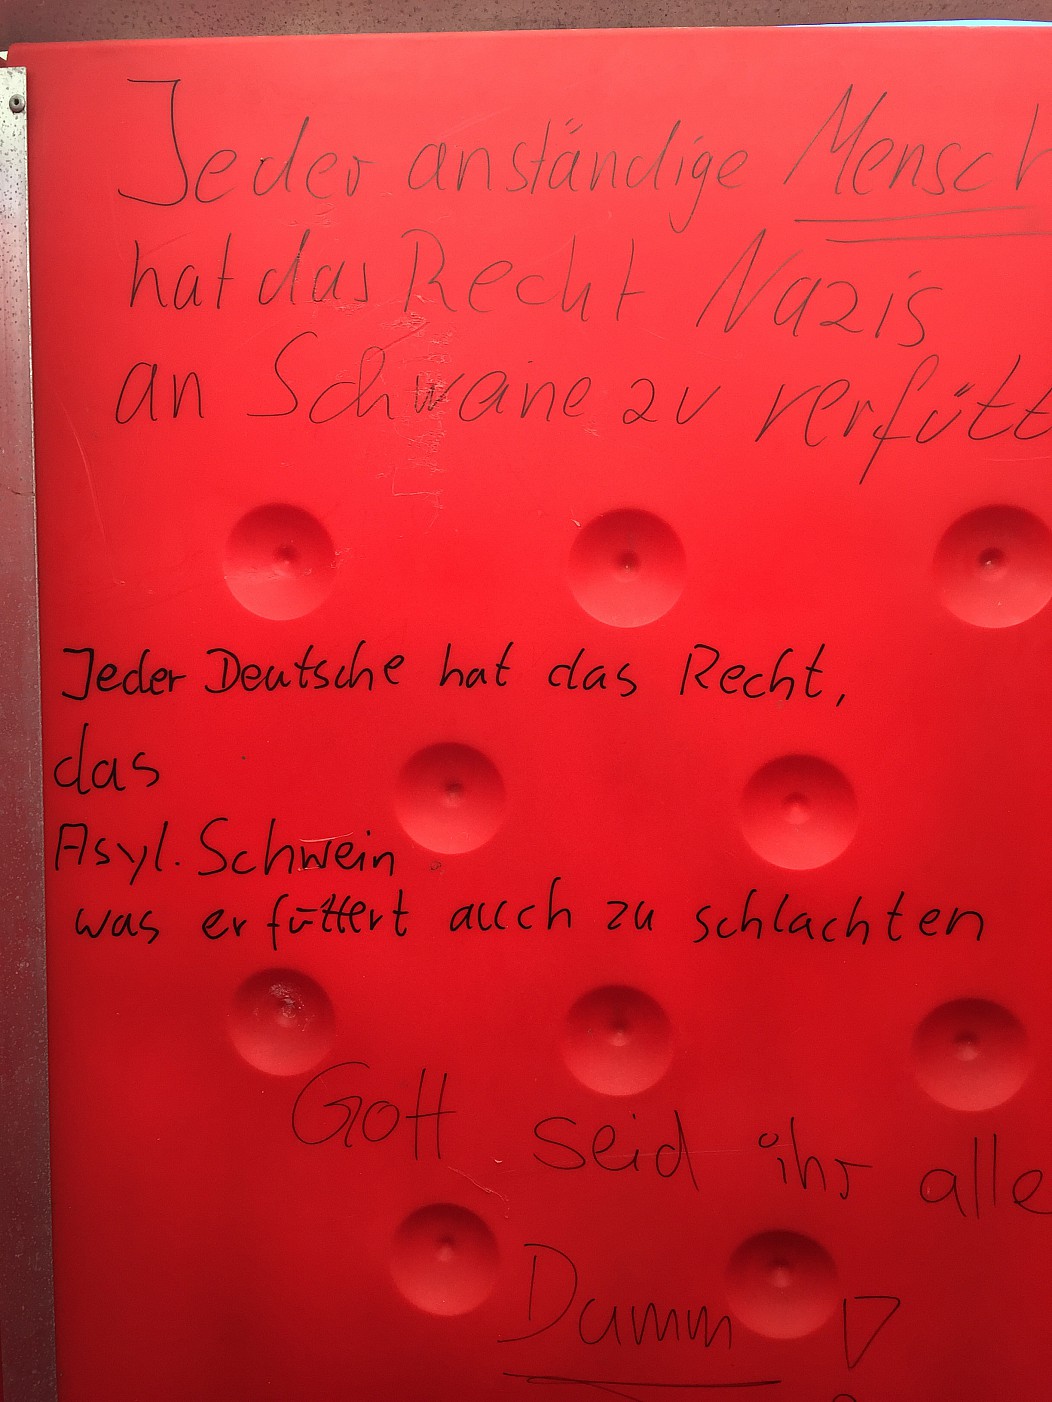 Jeder anständige Mensch
hat das Recht Nazis
an Schweine zu verfütt
Jeder Deutsche hat das Recht,
das
Asyl. Schwein
was er füttert auch zu schlachten
Gott seid ihr alle
Dumm !